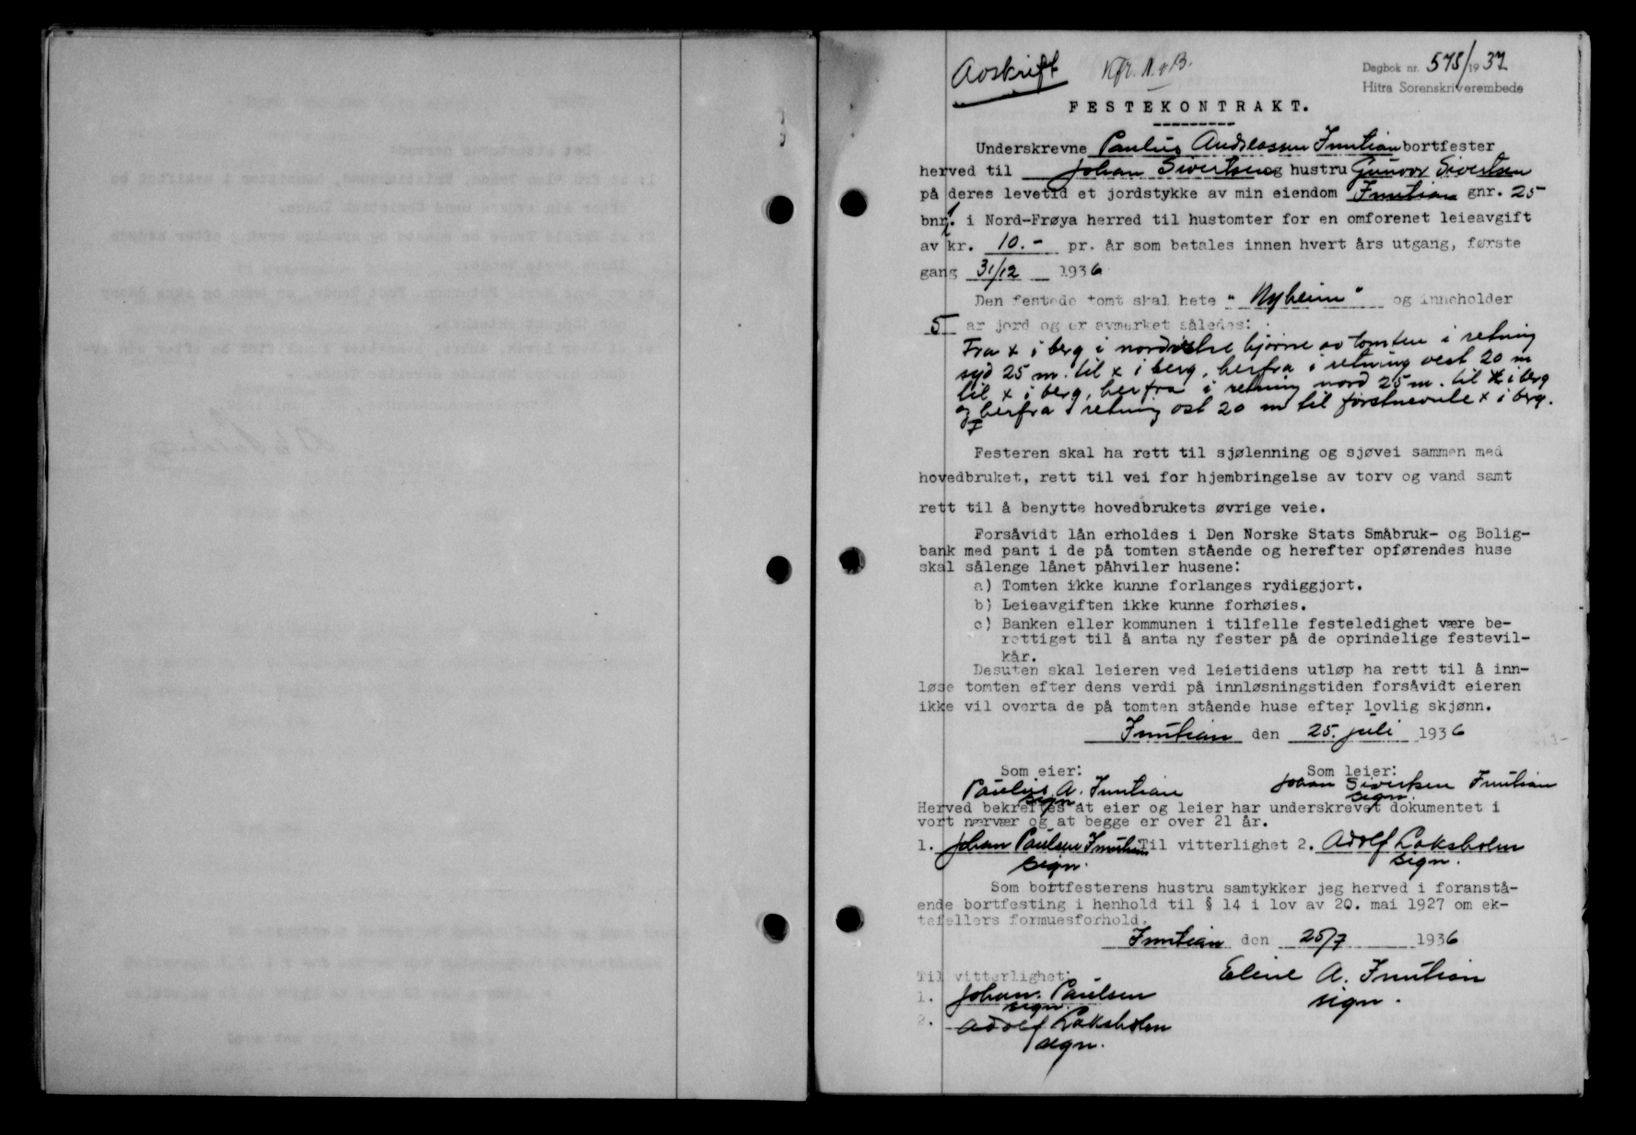 Avskrift
Kfr. N.o B.
Dagbok nr. 575/1937
Hitra Sorenskriverembede
FESTEKONTRAKT.
Underskrevne Paulus Andreassen Inntian bortfester
herved til Johan Sivertsen og hustru Gunvor Sivertsen
på deres levetid et jordstykke av min eiendom Inntian gnr. 25
bnr. 1 i Nord-Frøya herred til hustomter for en omforenet leieavgift
av kr. 10.- pr. år som betales innen hvert års utgang, første
gang 31/12 1936
Den festede tomt skal hete "Nyheim" og inneholder
5 ar jord og er avmerket således:
Fra x i berg i nordøstre hjørne av tomten i retning
syd 25 m. til x i berg, herfra i retning vest 20 m
til x i berg, herfra i retning nord 25 m. til x i berg
og herfra i retning ost 20 m til førstnevnte x i berg.
Festeren skal ha rett til sjølenning og sjøvei sammen med
hovedbruket, rett til vei for hjembringelse av torv og vand samt
rett til å benytte hovedbrukets øvrige veie.
Forsåvidt lån erholdes i Den Norske Stats Småbruk- og Bolig-
bank med pant i de på tomten stående og herefter opførendes huse
skal sålenge lånet påhviler husene:
a) Tomten ikke kunne forlanges rydiggjort.
b) Leieavgiften ikke kunne forhøies.
c) Banken eller kommunen i tilfelle festeledighet være be-
rettiget til å anta ny fester på de oprindelige festevil-
kår.
Desuten skal leieren ved leietidens utløp ha rett til å inn-
løse tomten efter dens verdi på innløsningstiden forsåvidt eieren
ikke vil overta de på tomten stående huse efter lovlig skjønn.
Inntian den 25. juli 1936
Som eier: Som leier:
Paulus A. Inntian Johan Sivertsen Inntian
sign. sign.
Herved bekreftes at eier og leier har underskrevet dokumentet i
vort nærvær og at begge er over 21 år.
1. Johan Paulsen Inntian Til vitterlighet 2. Adolf Loksholm
sign. sign.
Som bortfesterens hustru samtykker jeg herved i foranstå-
ende bortfesting i henhold til § 14 i lov av 20. mai 1927 om ek-
tefellers formuesforhold.
Inntian den 25/7 1936
Til vitterlighet: Eline A. Inntian
1. Johan Paulsen sign.
sign.
2. Adolf Loksholm
sign.